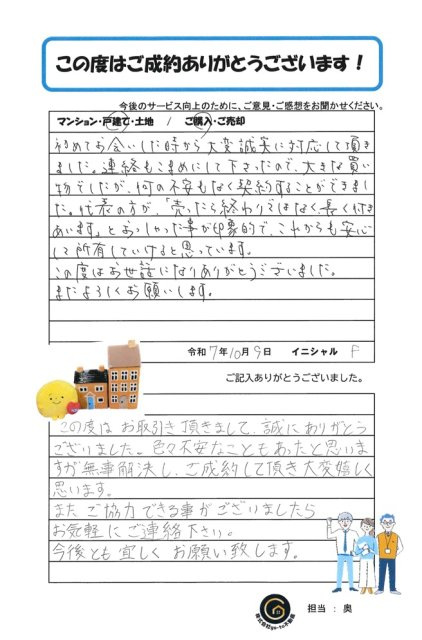 この度はご成約ありがとうございます！
今後のサービス向上のために、ご意見・ご感想をお聞かせください。
マンション・戸建て・土地　/　ご購入・ご売却
初めてお会いした時から大変誠実に対応して頂き
ました。連絡もこまめにして下さったので、大きな買い
物でしたが、何の不安もなく契約することができまし
た。代表の方が、「売ったら終わりではなく、長く付き
あいます」とおっしゃった事が印象的で、これからも安心
して所有していけると思っています。
この度はお世話になりありがとうございました。
またよろしくお願いします。
令和 7年10月 9日　イニシャル　F
ご記入ありがとうございました。
この度は お取引き頂きまして、誠にありがとう
ございました。色々不安なこともあったと思いま
すが無事解決し、ご成約して頂き大変嬉しく
思います。
また ご協力できる事がございましたら
お気軽に ご連絡下さい。
今後とも 宜しく お願い致します。
担当 : 奥